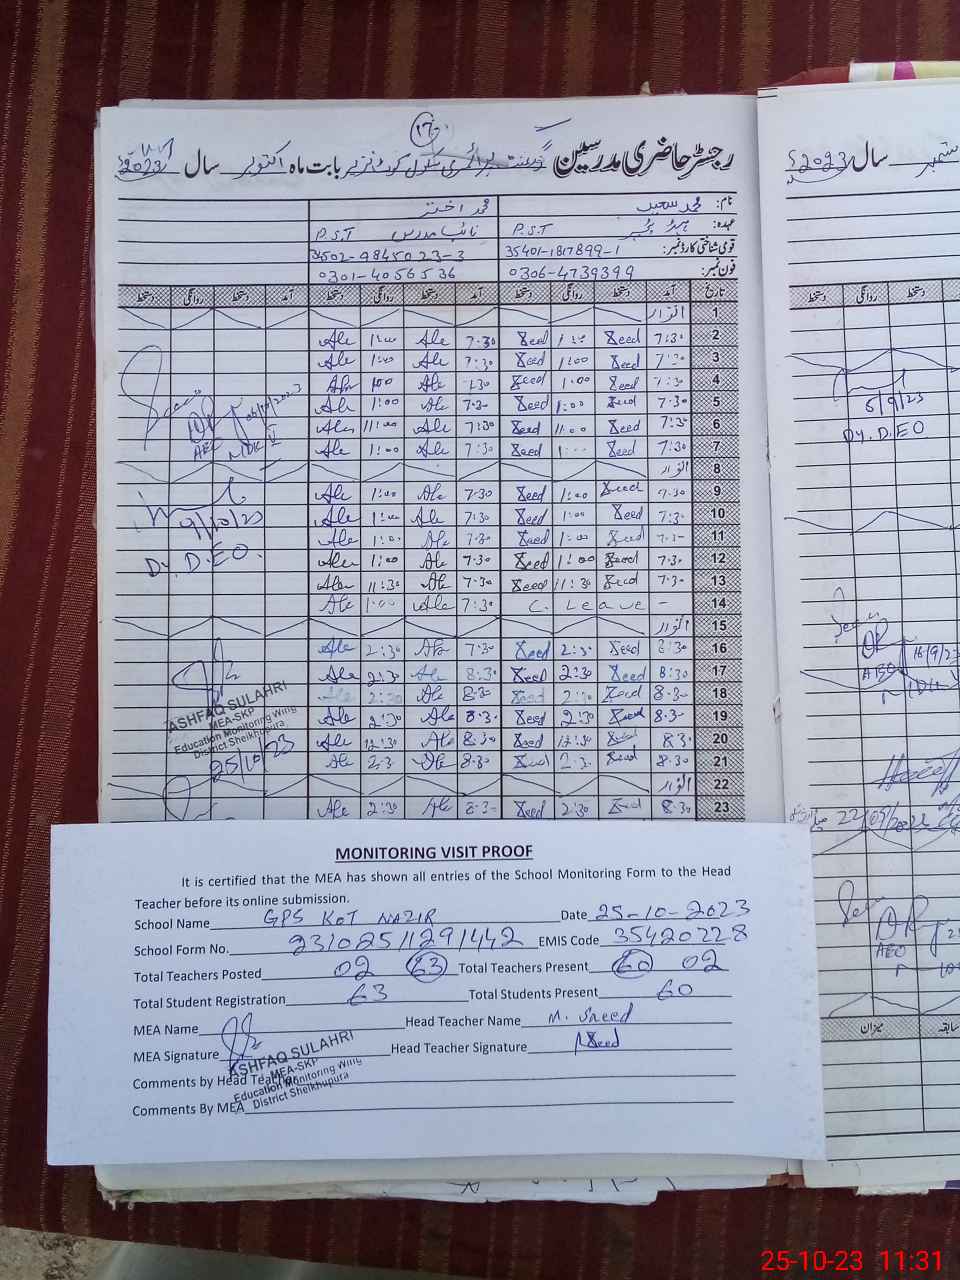 رجسٹر حاضری مدرسین گورنمنٹ پرائمری سکول کوٹ نزیر بابت ماہ اکتوبر سال 2023
نام: محمد سعید محمد اختر
عہدہ: ہیڈ ٹیچر P.S.T نائب مدرس P.S.T
قومی شناختی کارڈ نمبر: 35401-1817899-1 35402-9845023-3
فون نمبر: 0306-4739399 0301-4056536
تاریخ آمد دستخط روانگی دستخط آمد دستخط روانگی دستخط آمد دستخط روانگی دستخط
1 اتوار
2 7:30 Saeed 1:00 Saeed 7:30 Ale 1:00 Ale
3 7:30 Saeed 1:00 Saeed 7:30 Ale 1:00 Ale
4 7:30 Saeed 1:00 Saeed 7:30 Ale 1:00 Ale
5 7:30 Saeed 1:00 Saeed 7:30 Ale 1:00 Ale
6 7:30 Saeed 11:00 Saeed 7:30 Ale 11:00 Ale
7 7:30 Saeed 1:00 Saeed 7:30 Ale 1:00 Ale
8 اتوار
9 7:30 Saeed 1:00 Saeed 7:30 Ale 1:00 Ale
10 7:30 Saeed 1:00 Saeed 7:30 Ale 1:00 Ale
11 7:30 Saeed 1:00 Saeed 7:30 Ale 1:00 Ale
12 7:30 Saeed 1:00 Saeed 7:30 Ale 1:00 Ale
13 7:30 Saeed 11:30 Saeed 7:30 Ale 11:30 Ale
14 - C. Leave 7:30 Ale 1:00 Ale
15 اتوار
16 8:30 Saeed 2:30 Saeed 7:30 Ale 2:30 Ale
17 8:30 Saeed 2:30 Saeed 8:30 Ale 2:30 Ale
18 8:30 Saeed 2:30 Saeed 8:30 Ale 2:30 Ale
19 8:30 Saeed 2:30 Saeed 8:30 Ale 2:30 Ale
20 8:30 Saeed 12:30 Saeed 8:30 Ale 12:30 Ale
21 8:30 Saeed 2:30 Saeed 8:30 Ale 2:30 Ale
22 اتوار
23 8:30 Saeed 2:30 Saeed 8:30 Ale 2:30 Ale
AEO
9/10/23
Dy. D.E.O.
ASHFAQ SULAHRI
MEA-SKP
Education Monitoring Wing
District Sheikhupura
25/10/23
ستمبر سال 2023
دستخط روانگی دستخط
5/9/23
Dy. D.E.O
AEO 16/9/23
AEO
میزان سابقہ
MONITORING VISIT PROOF
It is certified that the MEA has shown all entries of the School Monitoring Form to the Head
Teacher before its online submission.
School Name GPS KOT NAZIR Date 25-10-2023
School Form No. 231025112911442 EMIS Code 35420228
Total Teachers Posted 02 63 Total Teachers Present 60 02
Total Student Registration 63 Total Students Present 60
MEA Name Head Teacher Name M. Saeed
MEA Signature Head Teacher Signature Saeed
Comments by Head Teacher
Comments By MEA
ASHFAQ SULAHRI
MEA-SKP
Education Monitoring Wing
District Sheikhupura
25-10-23 11:31